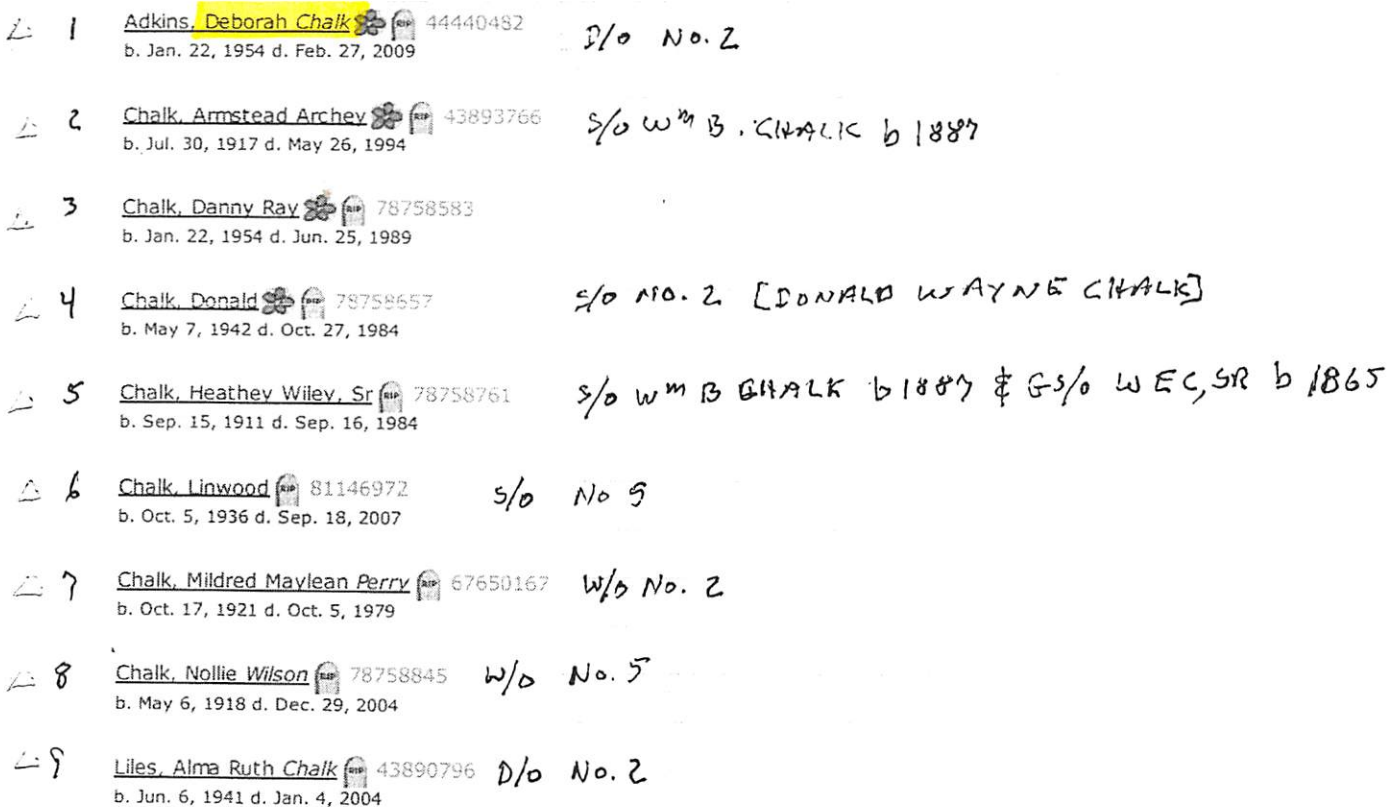 1 Adkins, Deborah Chalk RIP 44440482 D/o No. 2
b. Jan. 22, 1954 d. Feb. 27, 2009
2 Chalk, Armstead Archey RIP 43893766 S/o Wm B. CHALK b 1887
b. Jul. 30, 1917 d. May 26, 1994
3 Chalk, Danny Ray RIP 78758583
b. Jan. 22, 1954 d. Jun. 25, 1989
4 Chalk, Donald RIP 78758657 S/o No. 2 [DONALD WAYNE CHALK]
b. May 7, 1942 d. Oct. 27, 1984
5 Chalk, Heathey Wiley, Sr RIP 78758761 S/o Wm B CHALK b 1887 & GS/o WEC, SR b 1865
b. Sep. 15, 1911 d. Sep. 16, 1984
6 Chalk, Linwood RIP 81146972 S/o No 5
b. Oct. 5, 1936 d. Sep. 18, 2007
7 Chalk, Mildred Maylean Perry RIP 67650167 W/o No. 2
b. Oct. 17, 1921 d. Oct. 5, 1979
8 Chalk, Nollie Wilson RIP 78758845 W/o No. 5
b. May 6, 1918 d. Dec. 29, 2004
9 Liles, Alma Ruth Chalk RIP 43890796 D/o No. 2
b. Jun. 6, 1941 d. Jan. 4, 2004